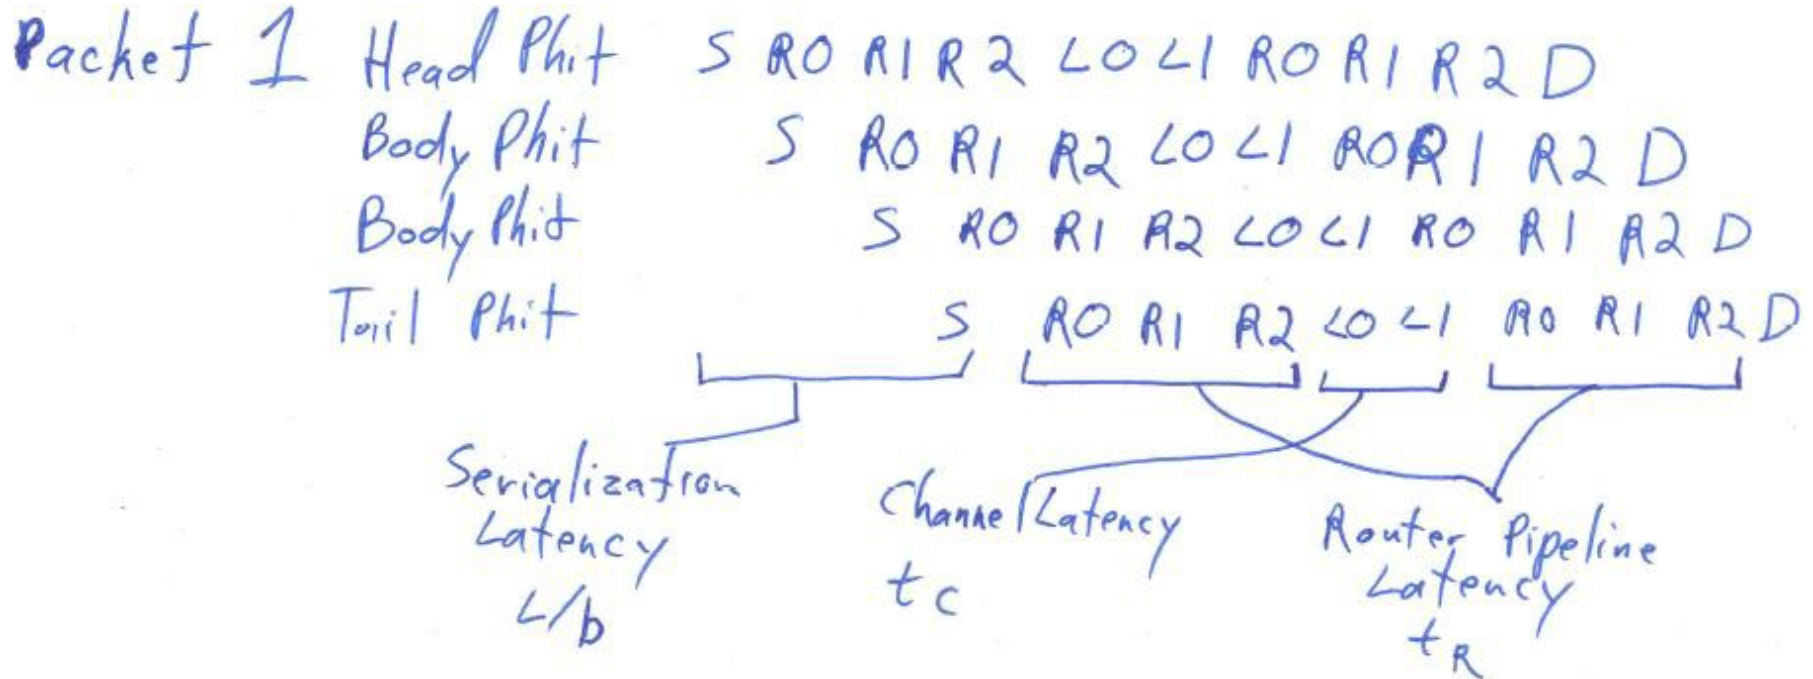 Packet 1 Head Phit S R0 R1 R2 L0 L1 R0 R1 R2 D
Body Phit S R0 R1 R2 L0 L1 R0 R1 R2 D
Body Phit S R0 R1 R2 L0 L1 R0 R1 R2 D
Tail Phit S R0 R1 R2 L0 L1 R0 R1 R2 D
Serialization
Latency
L/b
Channel Latency
tC
Router Pipeline
Latency
tR